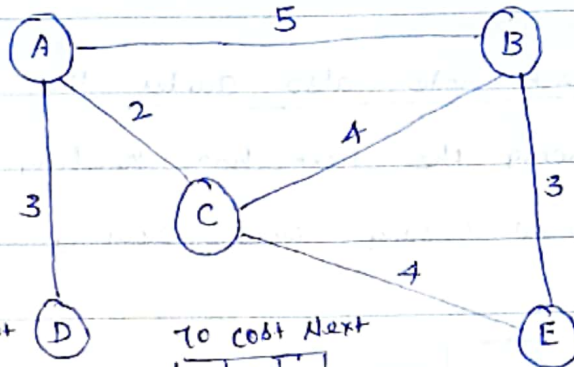 5
A
B
2
4
3
C
3
4
D
To cost Next
E